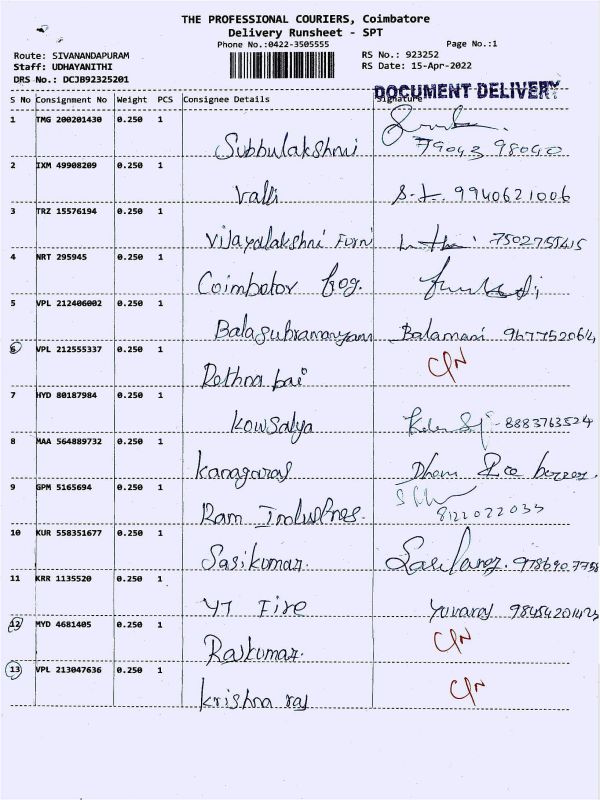 THE PROFESSIONAL COURIERS, Coimbatore
Delivery Runsheet - SPT
Phone No.:0422-3505555
Page No.:1
Route: SIVANANDAPURAM
RS No.: 923252
Staff: UDHAYANITHI
RS Date: 15-Apr-2022
DRS No.: DCJB92325201
DOCUMENT DELIVERY
S No Consignment No Weight PCS Consignee Details Signature
1 TMG 200201430 0.250 1
Subbulakshmi 79043 98040
2 IXM 49908209 0.250 1
Valli S.t. 9940621006
3 TRZ 15576194 0.250 1
Vijayalakshmi Furni 7502755415
4 NRT 295945 0.250 1
Coimbator
5 VPL 212406002 0.250 1
Balasubramanyam Balamani 967752064
6 VPL 212555337 0.250 1
Rethna bai C/N
7 HYD 80187984 0.250 1
Kowsalya 8883763524
8 MAA 564889732 0.250 1
Kanagaraj
9 GPM 5165694 0.250 1
Ram Industries. 8122022033
10 KUR 558351677 0.250 1
Sasikumar. 9786907758
11 KRR 1135520 0.250 1
YT Fire Yuvaraj 98454201423
12 MYD 4681405 0.250 1
Rajkumar. C/N
13 VPL 213047636 0.250 1
Krishna raj C/N